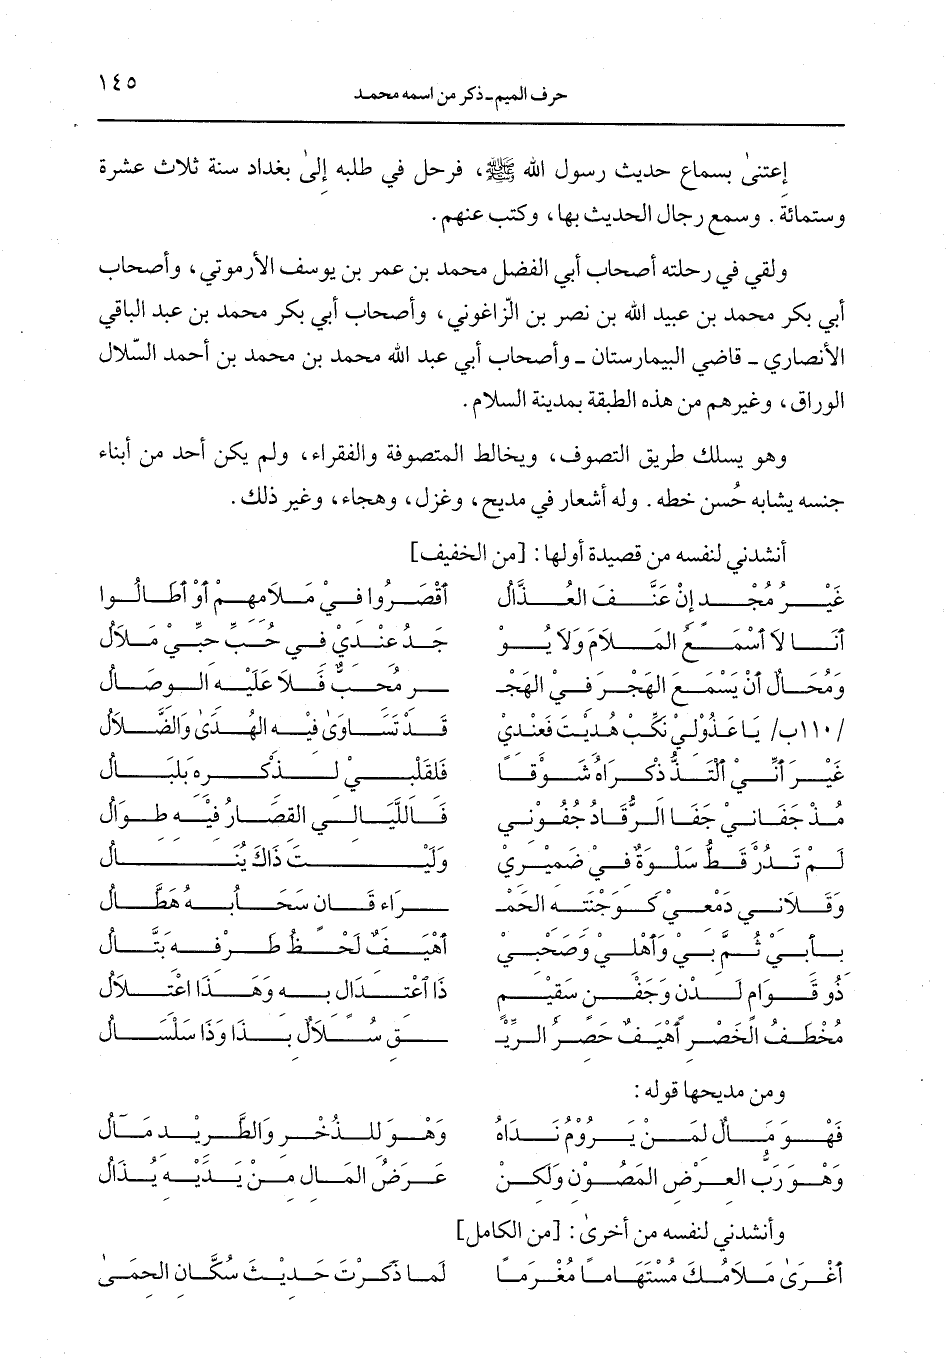 حرف الميم ـ ذكر من اسمه محمد ١٤٥
إعتنىٰ بسماع حديث رسول الله ﷺ، فرحل في طلبه إلىٰ بغداد سنة ثلاث عشرة
وستمائة. وسمع رجال الحديث بها، وكتب عنهم.
ولقي في رحلته أصحاب أبي الفضل محمد بن عمر بن يوسف الأرموتي، وأصحاب
أبي بكر محمد بن عبيد الله بن نصر بن الزّاغوني، وأصحاب أبي بكر محمد بن عبد الباقي
الأنصاري ـ قاضي البيمارستان ـ وأصحاب أبي عبد الله محمد بن محمد بن أحمد السّلال
الوراق، وغيرهم من هذه الطبقة بمدينة السلام.
وهو يسلك طريق التصوف، ويخالط المتصوفة والفقراء، ولم يكن أحد من أبناء
جنسه يشابه حُسن خطه. وله أشعار في مديح، وغزل، وهجاء، وغير ذلك.
أنشدني لنفسه من قصيدة أولها: [من الخفيف]
غَيْرُ مُجْدٍ إنْ عَنَّفَ العُذَّالُ أقْصَرُوا فِيْ مَلَامِهِمْ أوْ أطَالُوا
أنَا لاَ أسْمَعُ المَلاَمَ وَلاَ يُوْ جَدُ عِنْدِيْ فِي حُبِّ حِبِّيْ مَلاَلُ
وَمُحَالٌ أنْ يَسْمَعَ الهَجْرَ فِيْ الهَجْـ ـرِ مُحِبٌّ فَلاَ عَلَيْهِ الوِصَالُ
/١١٠ب/ يَا عَذُولِيْ نَكِّبْ هُدِيْتَ فَعِنْدِيْ قَدْ تَسَاوَىٰ فِيْهِ الهُدَىٰ وَالضَّلاَلُ
غَيْرَ أنِّيْ ألْتَذُّ ذِكْرَاهُ شَوْقاً فَلِقَلْبِيْ لِذِكْرِهِ بَلْبَالُ
مُذْ جَفَانِيْ جَفَا الرُّقَادُ جُفُوْنِي فَاللَّيَالِي القِصَارُ فِيْهِ طِوَالُ
لَمْ تَدُرْ قَطُّ سَلْوَةٌ فِيْ ضَمِيْرِيْ وَلَيْتَ ذَاكَ يُنَالُ
وَقَلاَنِي دَمْعِي كَوَجْنَتِهِ الحَمْـ ـرَاءِ قَانٍ سَحَابُهُ هَطَّالُ
بِأبِيْ ثُمَّ بِيْ وَأهْلِي وَصَحْبِيْ أهْيَفٌ لَحْظُ طَرْفِهِ بَتَّالُ
ذُو قَوَامٍ لَدْنٍ وَجَفْنٍ سَقِيْمٍ ذَا اعْتِدَالٍ بِهِ وَهَذَا اعْتِلاَلُ
مُخْطَفُ الخَصْرِ أهْيَفٌ حَصِرُ الرِّيْـ ـقِ سُلاَلٌ بِذَا وَذَا سَلْسَالُ
ومن مديحها قوله:
فَهْوَ مَالٌ لِمَنْ يَرُوْمُ نَدَاهُ وَهْوَ لِلذُّخْرِ وَالطَّرِيْدِ مَآلُ
وَهْوَ رَبُّ العِرْضِ المَصُوْنِ وَلكِنْ عَرَضُ المَالِ مِنْ يَدَيْهِ يُذَالُ
وأنشدني لنفسه من أخرىٰ: [من الكامل]
أغْرَىٰ مَلاَمُكَ مُسْتَهَاماً مُغْرَماً لَما ذَكَرْتَ حَدِيْثَ سُكَّانِ الحِمَىٰ